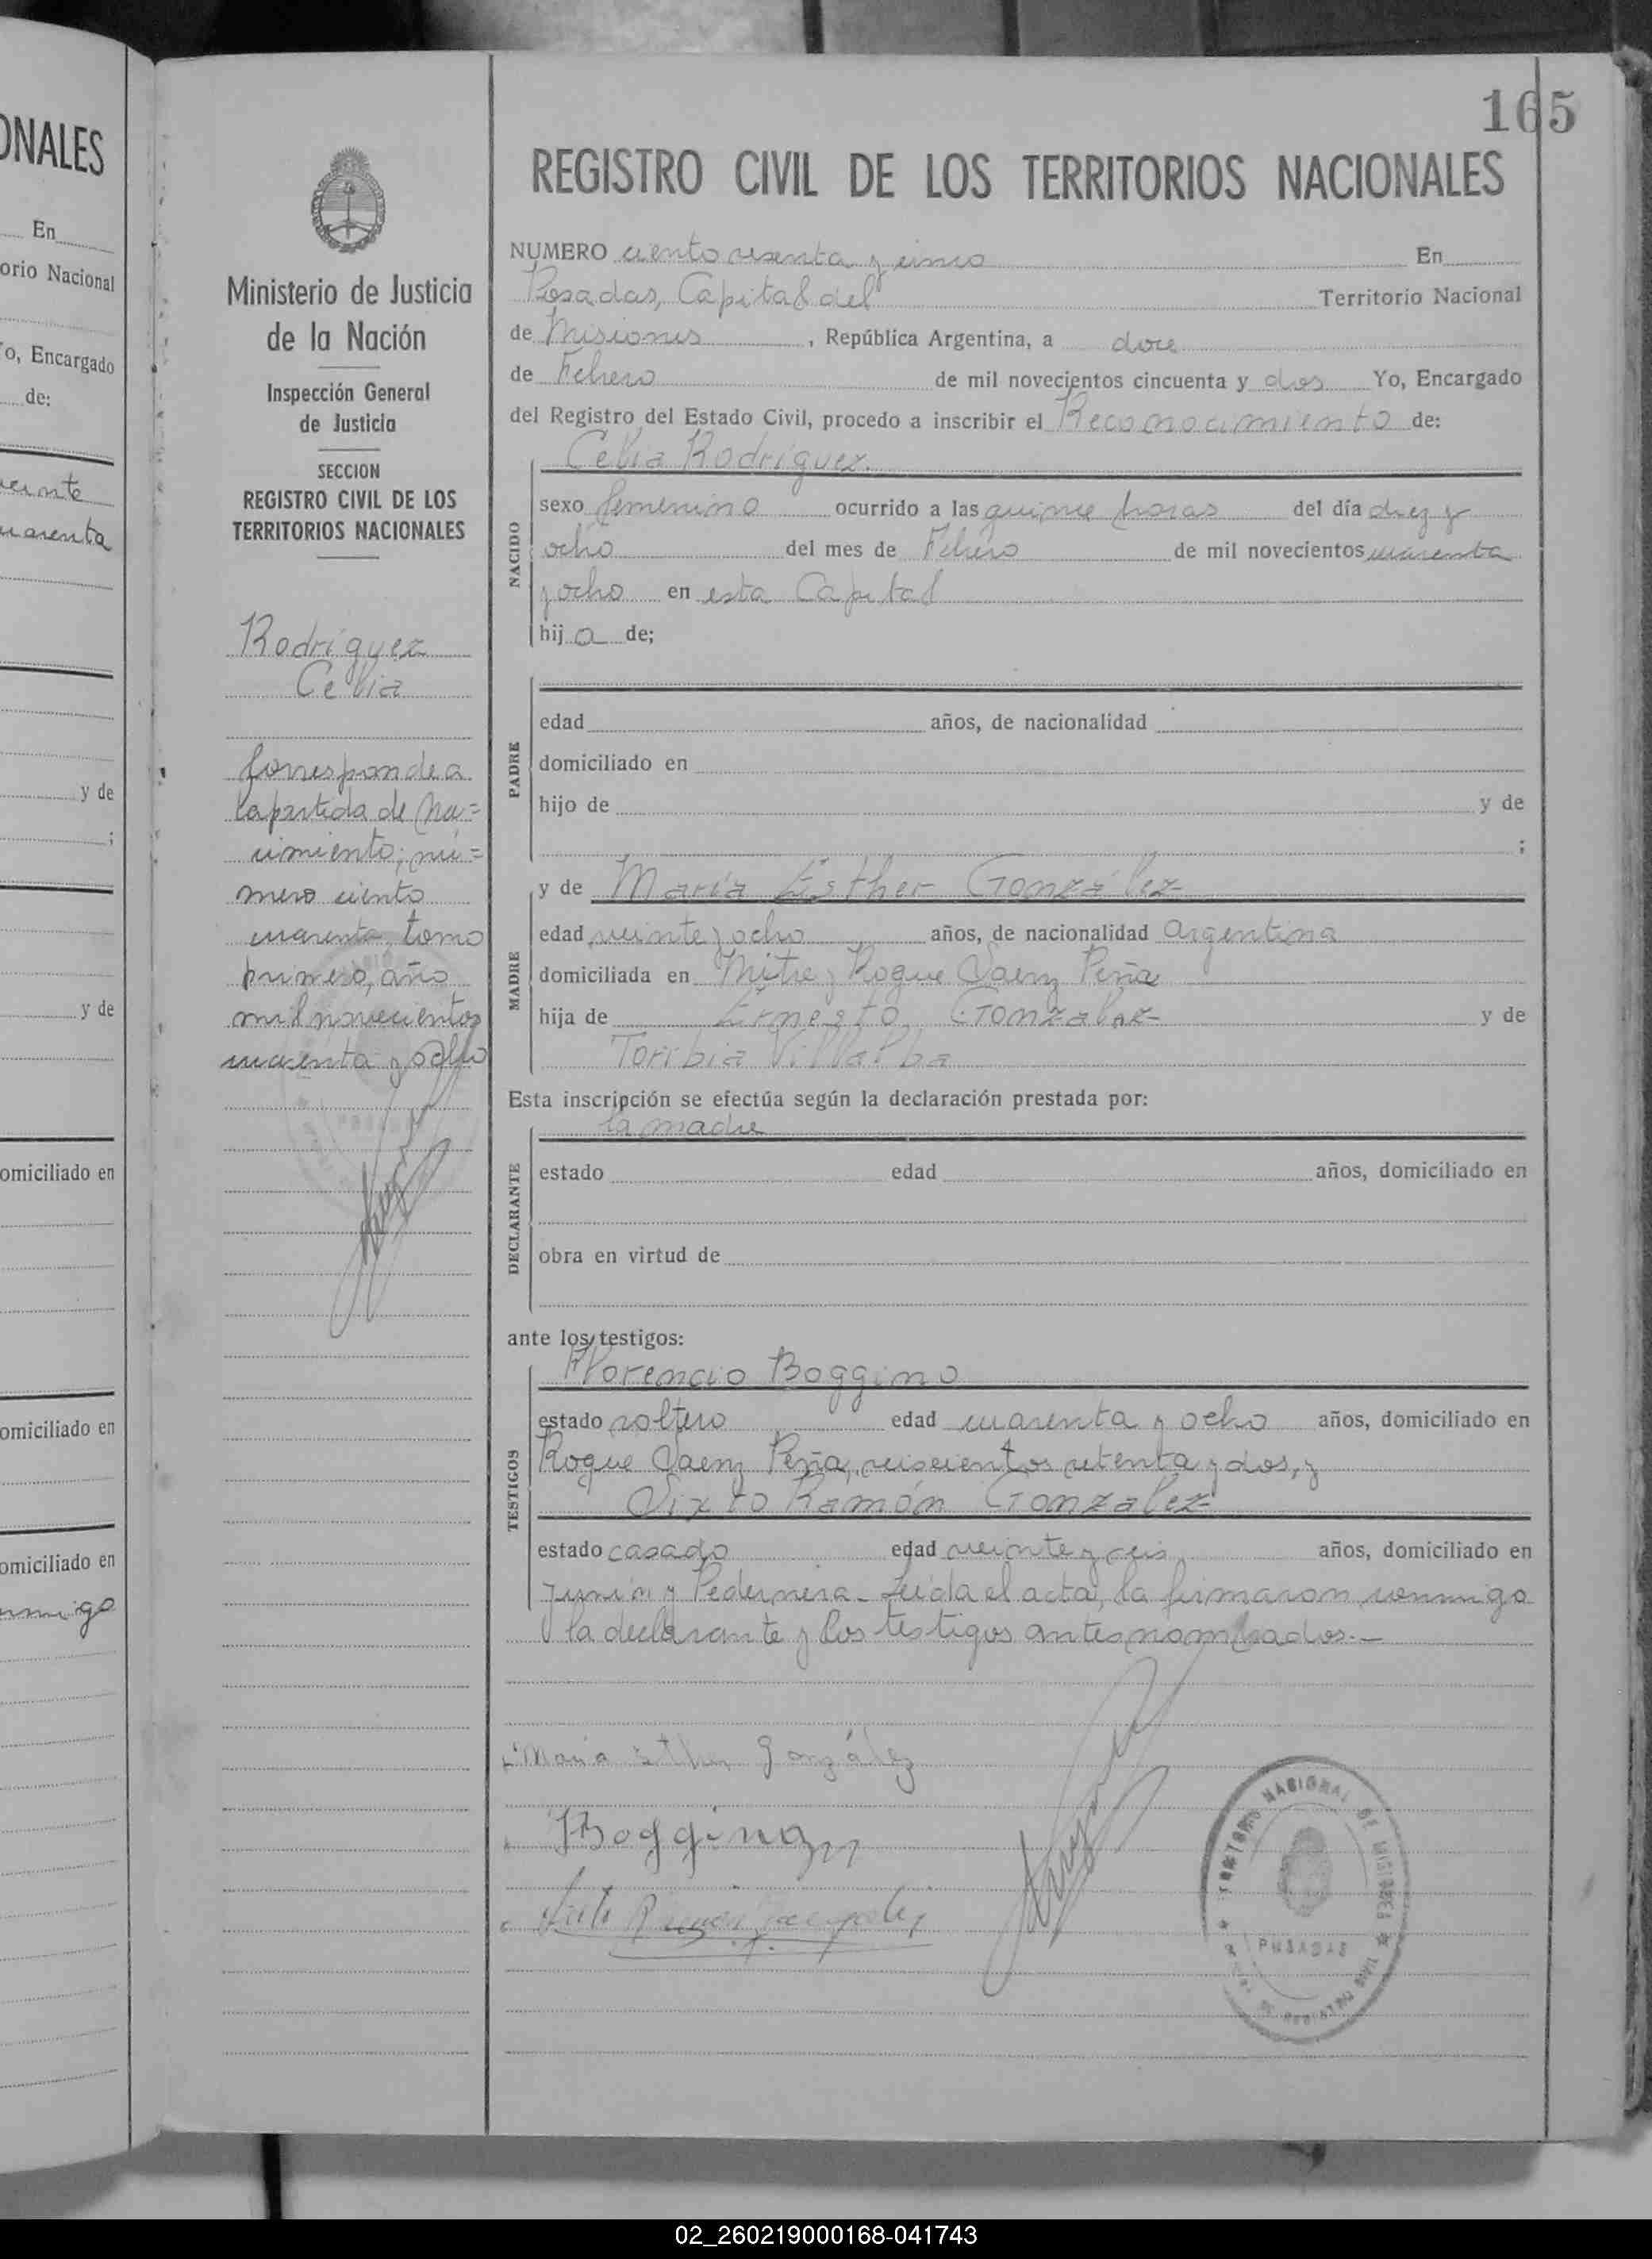 ONALES
En
orio Nacional
o, Encargado
de:
veinte
uarenta
y de
;
y de
omiciliado en
omiciliado en
omiciliado en
nmigo
165
Ministerio de Justicia
de la Nación
Inspección General
de Justicia
SECCION
REGISTRO CIVIL DE LOS
TERRITORIOS NACIONALES
Rodríguez
Celia
Corresponde a
la partida de Na=
cimiento; nú=
mero ciento
cuarenta, tomo
primero, año
mil novecientos
cuarenta y ocho
REGISTRO CIVIL DE LOS TERRITORIOS NACIONALES
NUMERO ciento sesenta y cinco En
Posadas, Capital del Territorio Nacional
de Misiones, República Argentina, a doce
de Febrero de mil novecientos cincuenta y dos Yo, Encargado
del Registro del Estado Civil, procedo a inscribir el Reconocimiento de:
Celia Rodríguez.
NACIDO
sexo femenino ocurrido a las quince horas del día diez y
ocho del mes de Febrero de mil novecientos cuarenta
y ocho en esta Capital
hija de;
PADRE
edad años, de nacionalidad
domiciliado en
hijo de y de
;
MADRE
y de María Esther González
edad veinte y ocho años, de nacionalidad Argentina
domiciliada en Mitre y Roque Saenz Peña
hija de Ernesto González y de
Toribia Villalba
Esta inscripción se efectúa según la declaración prestada por:
la madre
DECLARANTE
estado edad años, domiciliado en
obra en virtud de
ante los testigos:
TESTIGOS
Florencio Boggino
estado soltero edad cuarenta y ocho años, domiciliado en
Roque Saenz Peña, seiscientos setenta y dos, y
Sixto Ramón Gonzalez
estado casado edad veinte y seis años, domiciliado en
Junín y Pedernera. Leída el acta, la firmaron conmigo
la declarante y los testigos antes nombrados.-
Maria Esther González
Boggino
TERRITORIO NACIONAL DE MISIONES
POSADAS
02_260219000168-041743